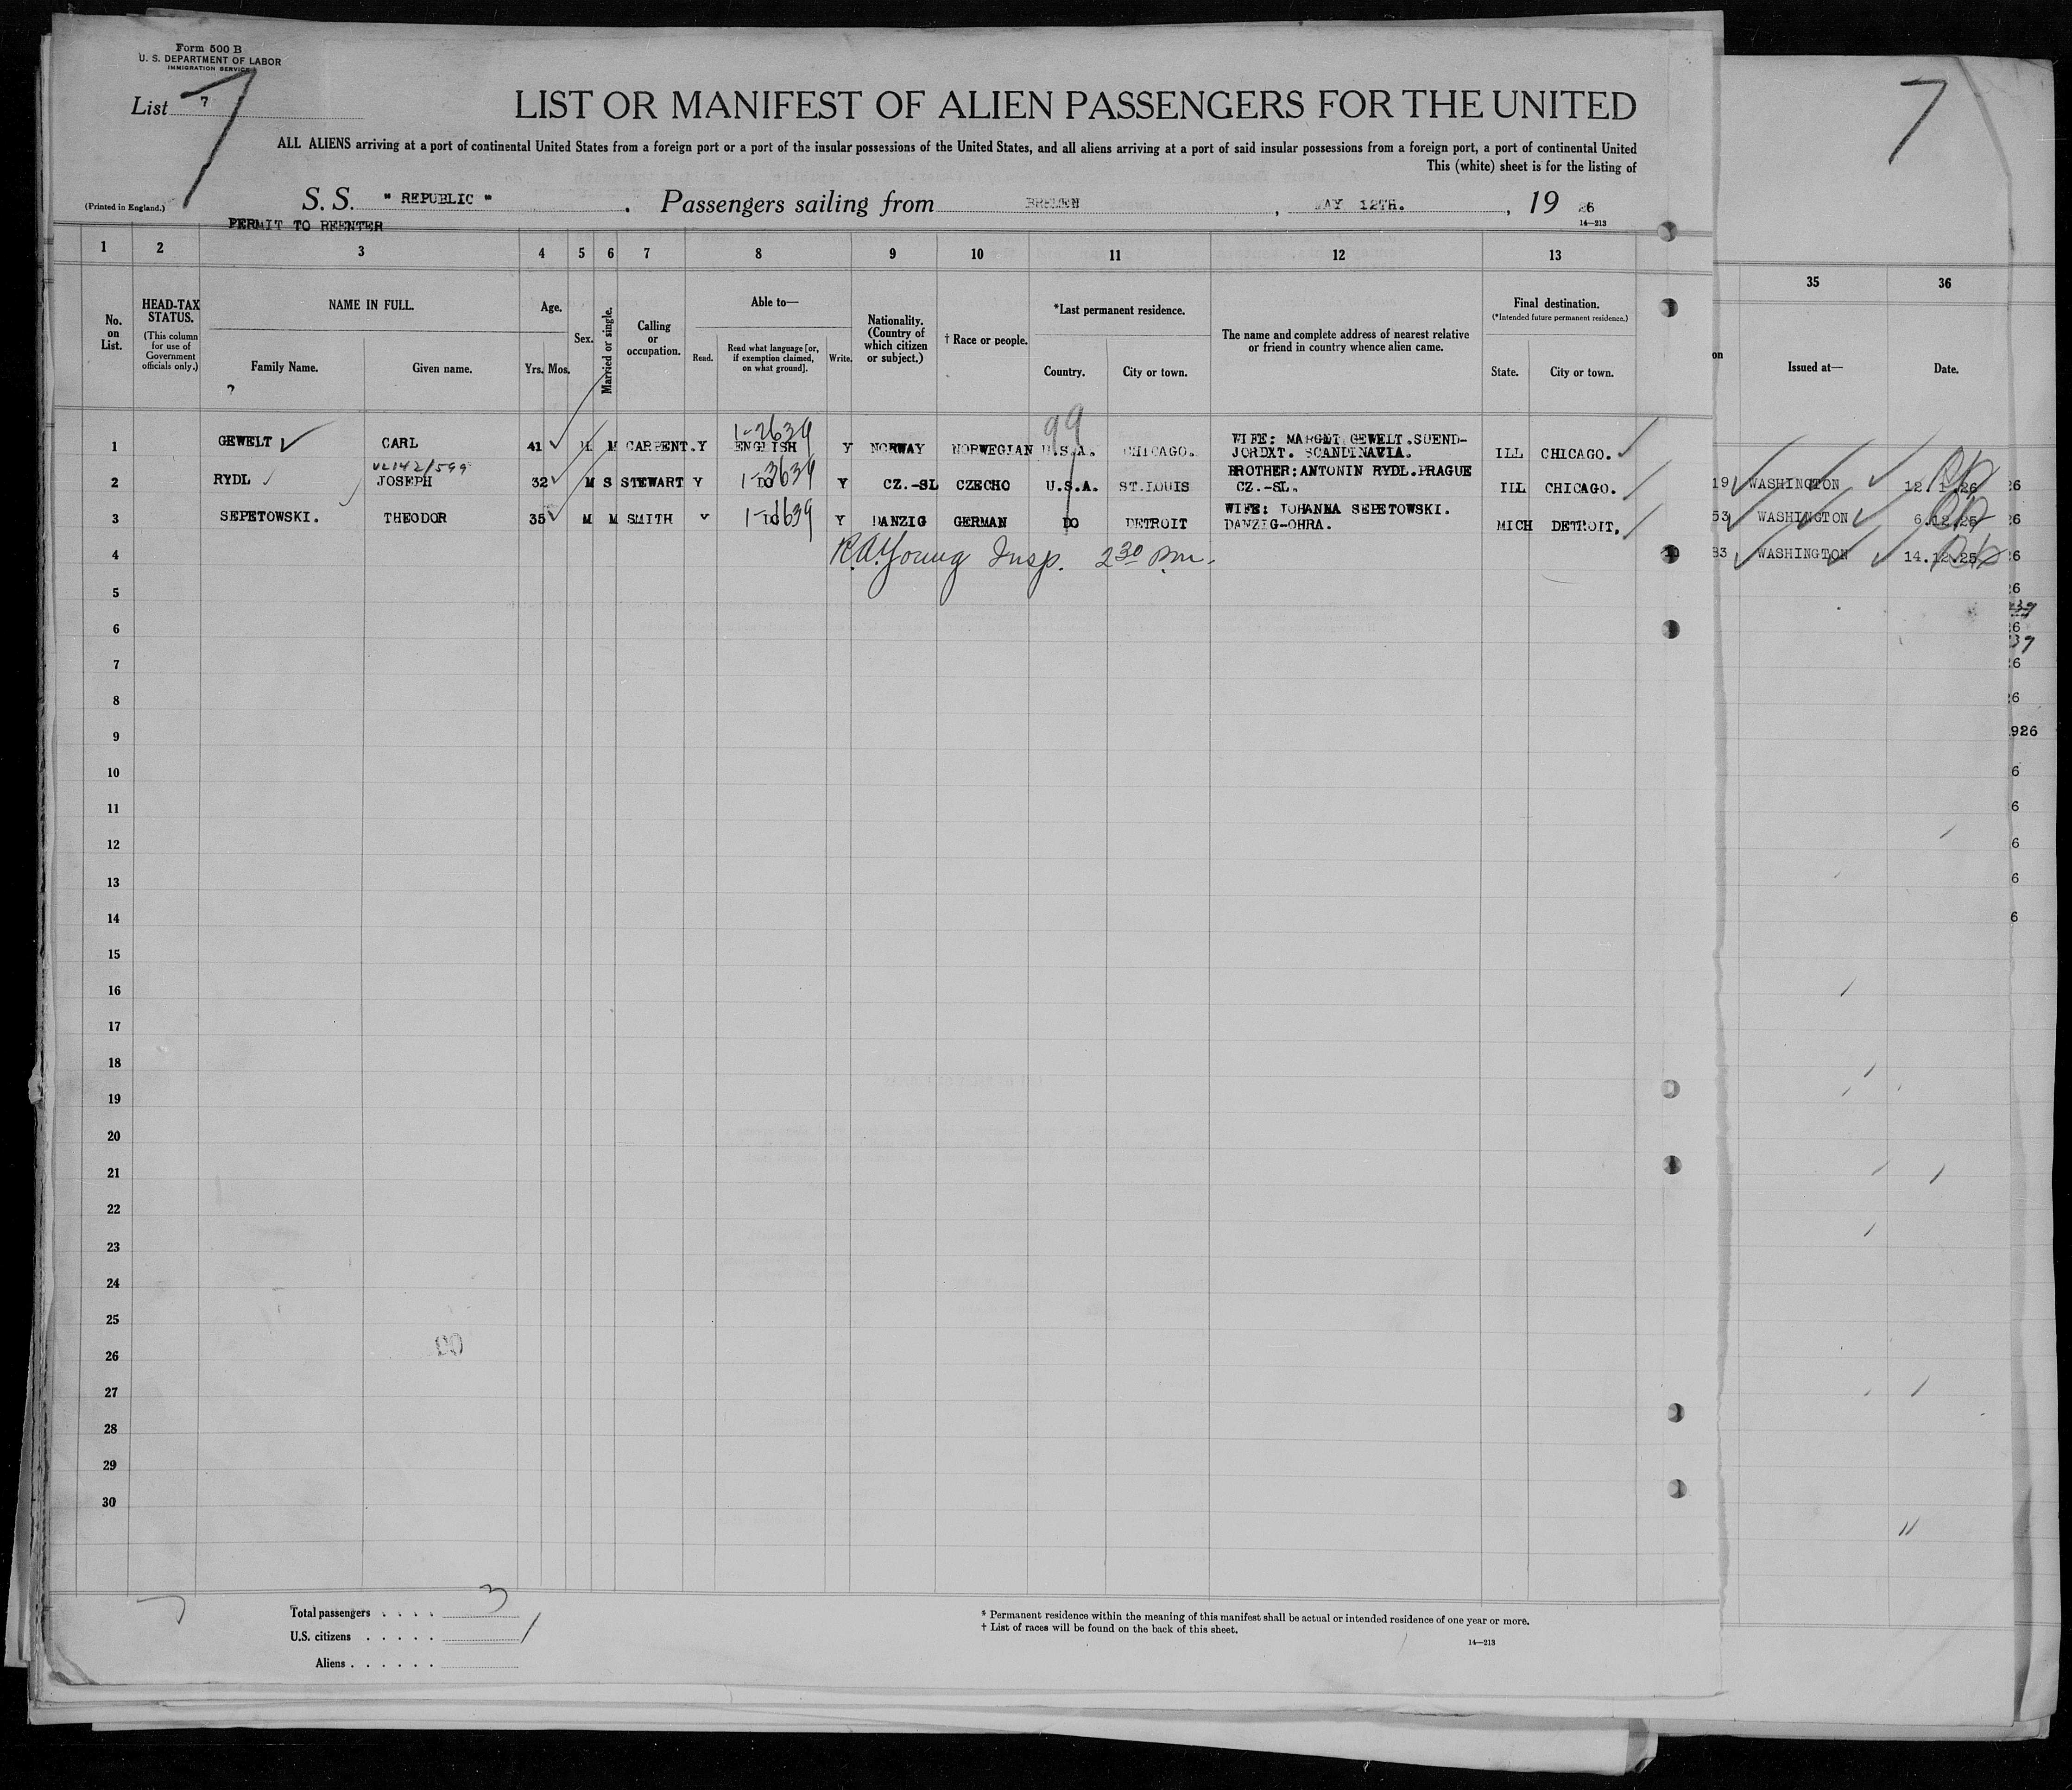 Form 500 B
U. S. DEPARTMENT OF LABOR
IMMIGRATION SERVICE
List 7
7
LIST OR MANIFEST OF ALIEN PASSENGERS FOR THE UNITED
ALL ALIENS arriving at a port of continental United States from a foreign port or a port of the insular possessions of the United States, and all aliens arriving at a port of said insular possessions from a foreign port, a port of continental United
This (white) sheet is for the listing of
(Printed in England.)
S. S. " REPUBLIC " . Passengers sailing from BREMEN , MAY 12TH. , 19 26
14—213
PERMIT TO REENTER
1 2 3 4 5 6 7 8 9 10 11 12 13
No. on List.
HEAD-TAX STATUS.
(This column for use of Government officials only.)
NAME IN FULL.
Family Name. Given name.
?
Age.
Yrs. Mos.
Sex.
Married or single.
Calling or occupation.
Able to—
Read. Read what language [or, if exemption claimed, on what ground]. Write.
Nationality. (Country of which citizen or subject.)
† Race or people.
*Last permanent residence.
Country. City or town.
The name and complete address of nearest relative or friend in country whence alien came.
Final destination.
(*Intended future permanent residence.)
State. City or town.
99
1-2639
1 GEWELT CARL 41 M M CARPENT. Y ENGLISH Y NORWAY NORWEGIAN U.S.A. CHICAGO. WIFE: MARGET GEWELT. SUEND-
JORDXT. SCANDINAVIA. ILL CHICAGO.
VL142/599
1-3639
2 RYDL JOSEPH 32 M S STEWART Y DO Y CZ.-SL CZECHO U.S.A. ST.LOUIS BROTHER: ANTONIN RYDL. PRAGUE
CZ.-SL. ILL CHICAGO.
3 SEPETOWSKI. THEODOR 35 M M SMITH Y DO Y DANZIG GERMAN DO DETROIT WIFE: JOHANNA SEPETOWSKI.
DANZIG-OHRA. MICH DETROIT.
4 R.A. Young Insp. 2 30 p.m.
5
6
7
8
9
10
11
12
13
14
15
16
17
18
19
20
21
22
23
24
25
26
27
28
29
30
Total passengers . . . . 3
U.S. citizens . . . . .
Aliens . . . . . .
* Permanent residence within the meaning of this manifest shall be actual or intended residence of one year or more.
† List of races will be found on the back of this sheet.
14—213
7
35 36
on Issued at— Date.
19 WASHINGTON 12.1.26 26
53 WASHINGTON 6.12.25 26
83 WASHINGTON 14.12.25 26
26
26
26
26
926
6
6
6
6
6